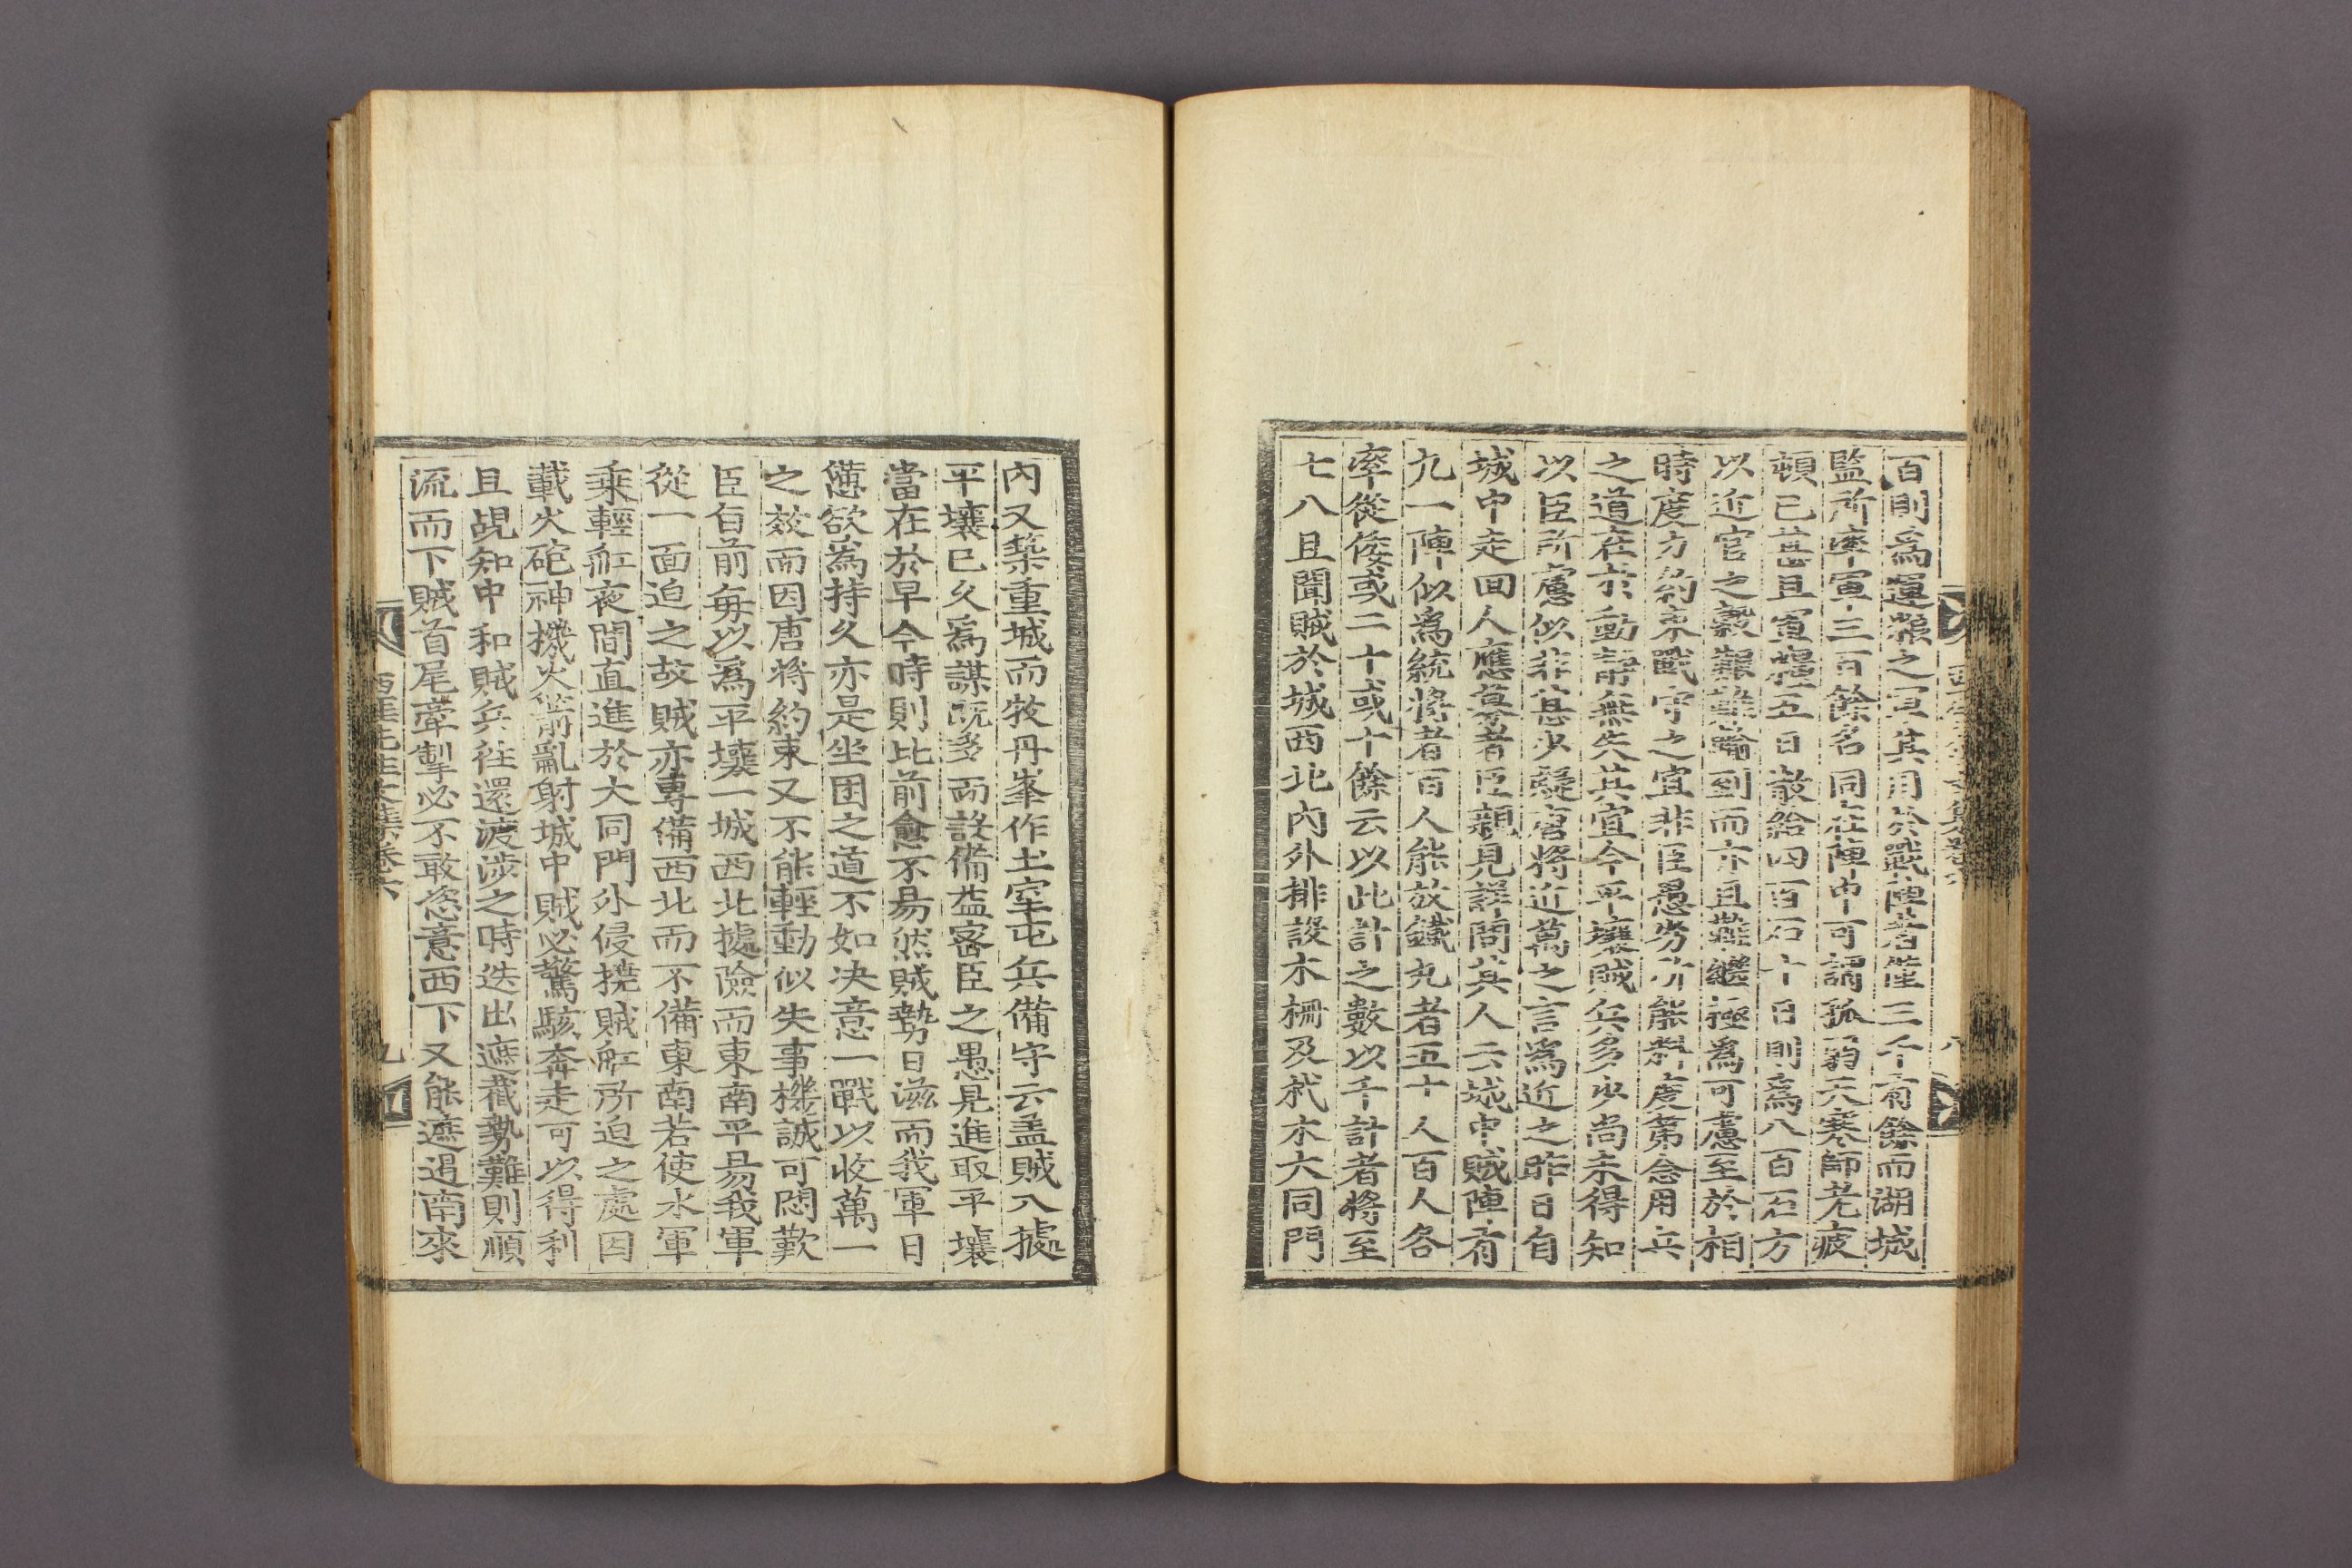 百則爲運粮之軍其用於戰陣者僅三千有餘而湖城
監所率軍三百餘名同在陣中可謂孤弱天寒師老疲
頓已甚且軍糧五日散給四百石十日則爲八百石方
以近官之穀艱難輸到而亦且難繼極爲可慮至於相
時度力約束戰守之宜非臣愚劣所能料度第念用兵
之道在於動靜無失其宜今平壤賊兵多少尚未得知
以臣所慮似非甚少疑唐將近萬之言爲近之昨日自
城中走回人應募者臣親見詳問其人云城中賊陣有
九一陣似爲統將者百人能放鐵丸者五十人百人各
率從倭或二十或十餘云以此計之數以千計者將至
七八且聞賊於城西北內外排設木柵及杙木大同門
西厓先生文集卷六
八
內又築重城而牧丹峯作土窂屯兵備守云盖賊入據
平壤已久爲謀旣多而設備益密臣之愚見進取平壤
當在於早今時則比前愈不易然賊勢日滋而我軍日
憊欲爲持久亦是坐困之道不如决意一戰以收萬一
之效而因唐將約束又不能輕動似失事機誠可悶歎
臣自前每以爲平壤一城西北據險而東南平易我軍
從一面迫之故賊亦專備西北而不備東南若使水軍
乘輕舡夜間直進於大同門外侵撓賊舡所迫之處因
載火砲神機火箭亂射城中賊必驚駭奔走可以得利
且覘知中和賊兵往還渡涉之時迭出遮截勢難則順
流而下賊首尾牽掣必不敢恣意西下又能遮遏南來
西厓先生文集卷六
九